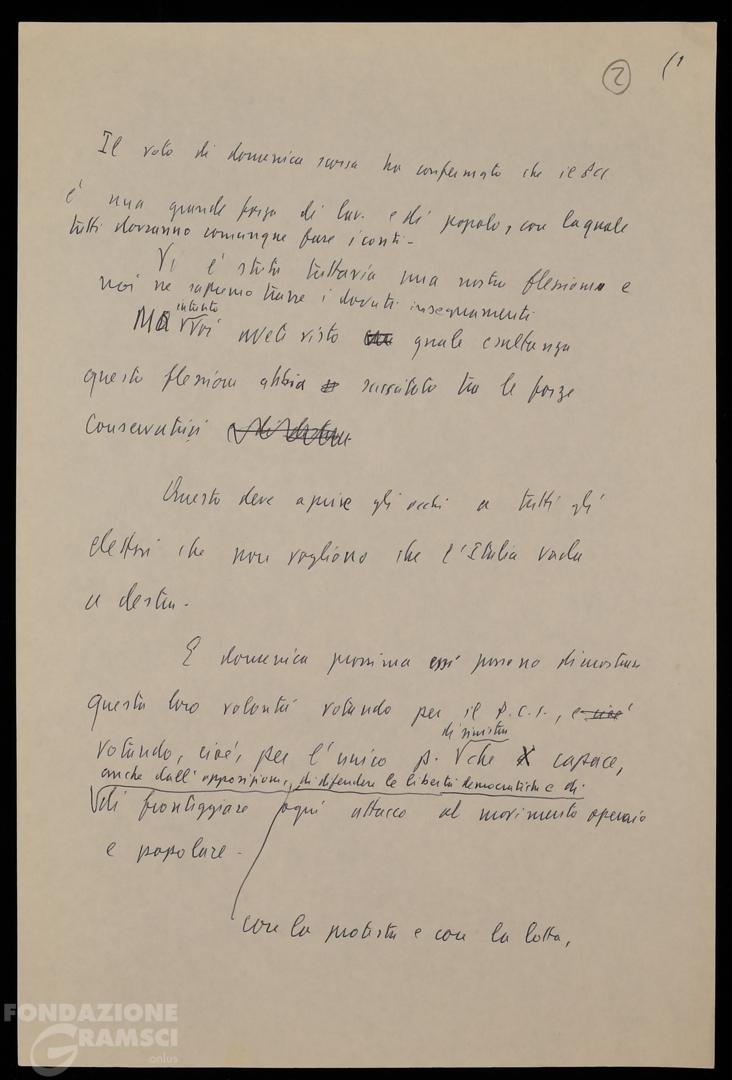 2 (1
Il voto di domenica scorsa ha confermato che il PCI
è una grande forza di lav. e di popolo, con la quale
tutti dovranno comunque fare i conti.
Vi è stata tuttavia una nostra flessione e
noi ne sapremo trarre i dovuti insegnamenti
intanto
Ma voi avete visto quale esultanza
questa flessione abbia suscitato tra le forze
conservatrici
Questo deve aprire gli occhi a tutti gli
elettori che non vogliono che l'Italia vada
a destra.
E domenica prossima essi possono dimostrare
questa loro volontà votando per il P.C.I., e cioè
di sinistra
votando, cioè, per l'unico p. che capace,
anche dall'opposizione, di difendere le libertà democratiche e di
di fronteggiare ogni attacco al movimento operaio
e popolare.
con la protesta e con la lotta,
FONDAZIONE
GRAMSCI
onlus